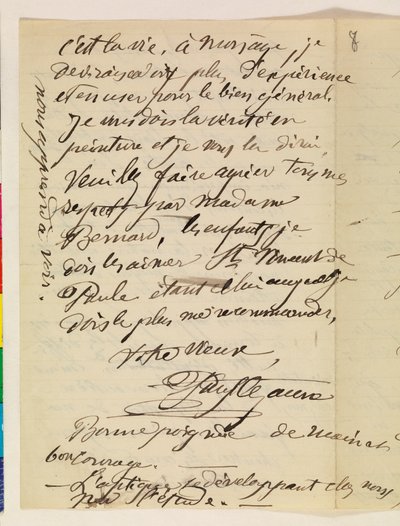 8
c'est la vie, à mon âge, je
devrais avoir plus d'expérience
et en user pour le bien général.
Je vous dois la vérité en
peinture et je vous la dirai.
Veuillez faire agréer tous mes
respects par madame
Bernard, les enfants, je
dois les aimer St Vincent de
Paule étant celui auquel je
dois le plus me recommander,
votre vieux,
Paul Cezanne
Bonne poignée de main et
bon courage.
L'optique se développant chez nous
par l'étude.
nous apprend à voir.